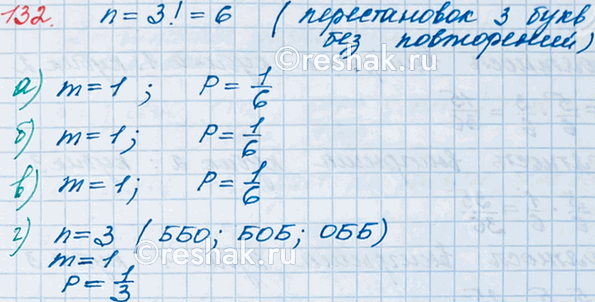 132. n = 3! = 6 (перестановок 3 букв
без повторений)
а) m = 1; P = 1/6
б) m = 1; P = 1/6
в) m = 1; P = 1/6
г) n = 3 (ББО; БОБ; ОББ)
m = 1
P = 1/3